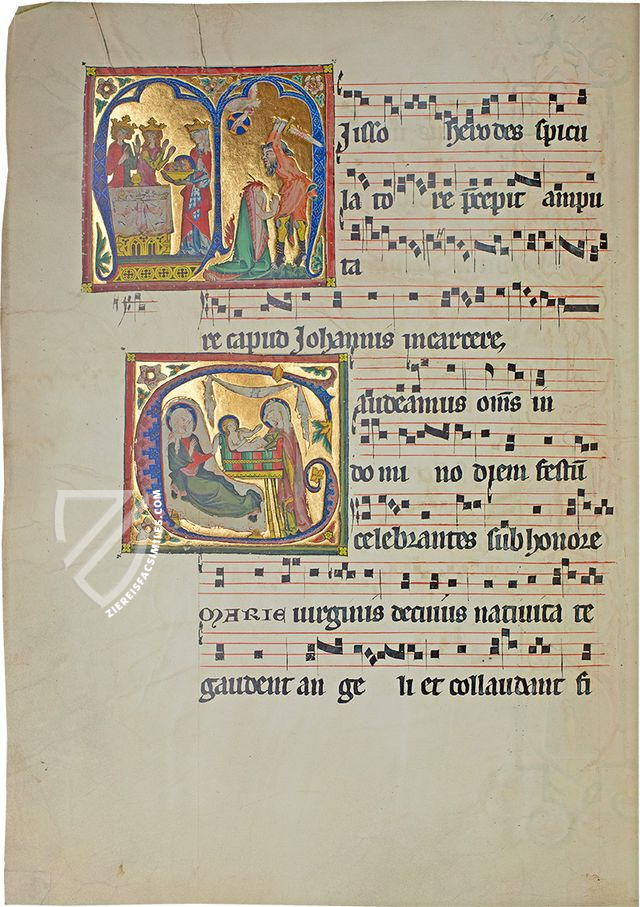 Misso herodes spicu
la to re p̄cepit ampu
ta
re capud Johannis incarcere,
Gaudeamus om̄s in
do mi no diem festū
celebrantes sub honore
MARIE uirginis decuius natiuita te
gaudent an ge li et collaudant fi
ZIEREISFACSIMILES.COM